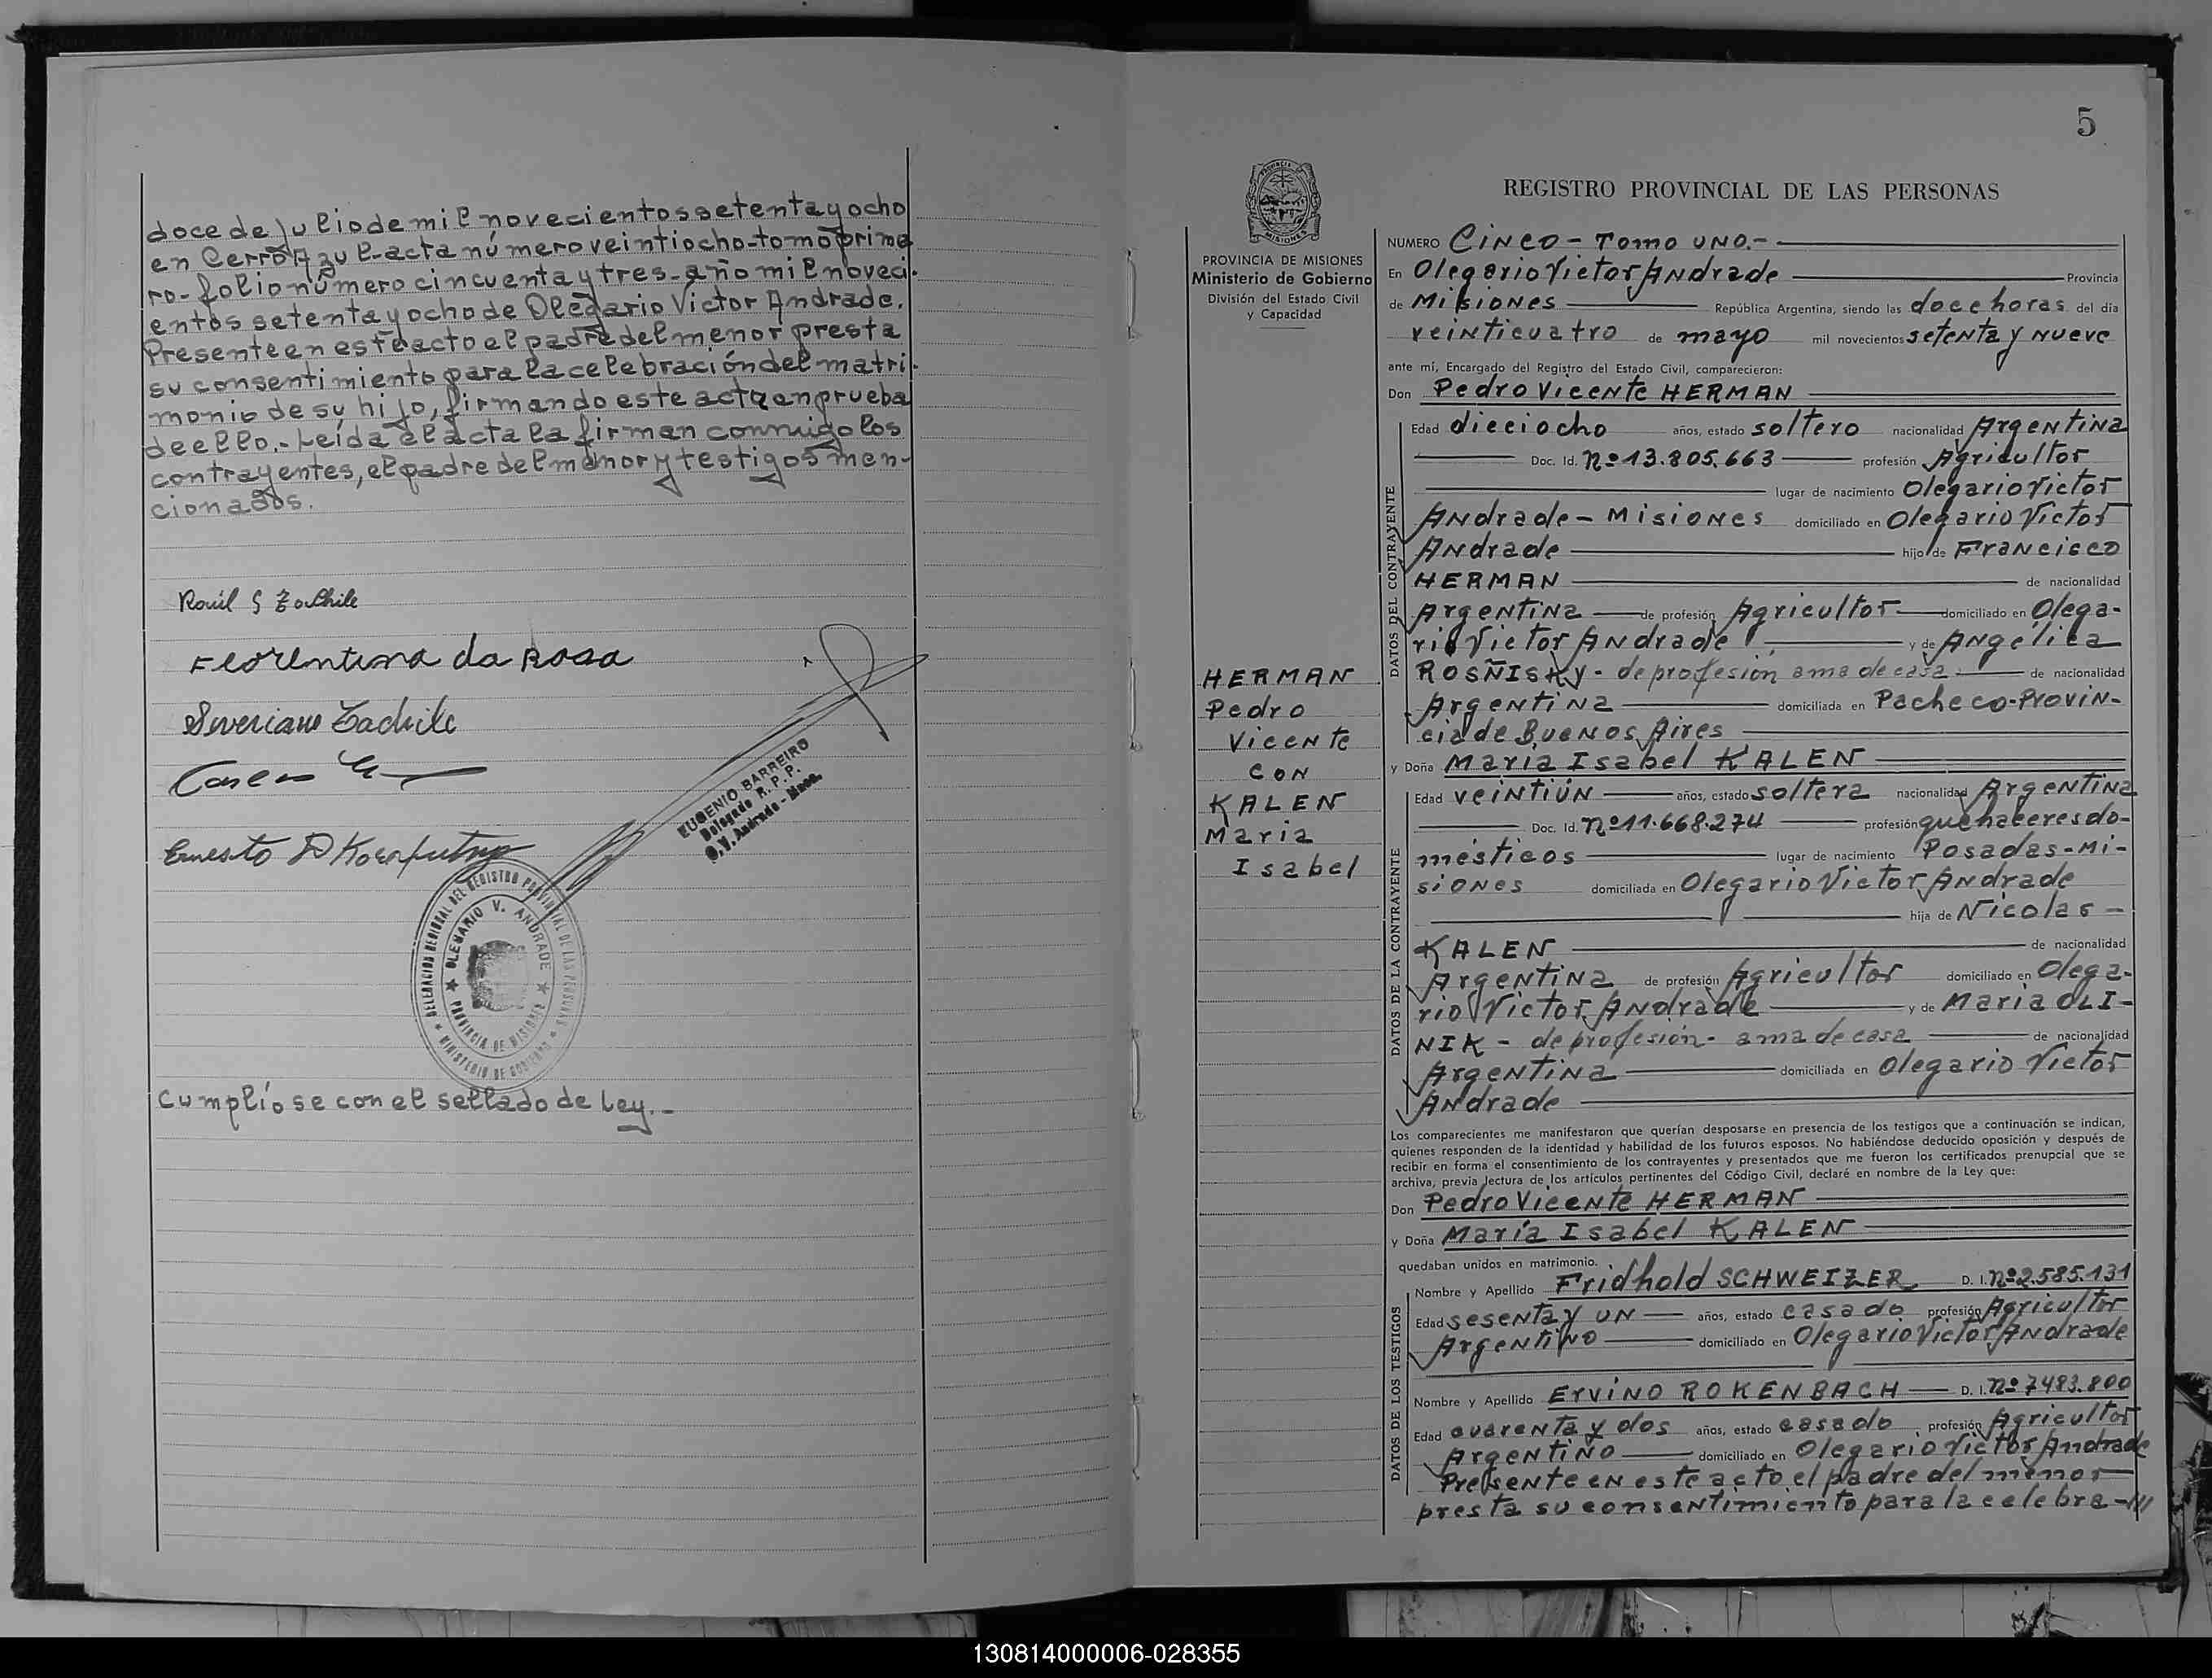 doce de julio de mil novecientos setenta y ocho
en Cerro Azul-acta número veintiocho-tomo prime
ro-folio número cincuenta y tres-año mil noveci-
entos setenta y ocho de Olegario Victor Andrade.
Presente en este acto el padre del menor presta
su consentimiento para la celebración del matri-
monio de su hijo, firmando este acta en prueba
de ello.- Leída el acta la firman conmigo los
contrayentes, el padre del menor y testigos men-
cionados.
Raúl
Florentina da Rosa
Severiano Zachile
Ernesto
EUGENIO BARREIRO
Delegado R. P. P.
O. V. Andrade - Mnes.
DELEGACION REGIONAL DEL REGISTRO PROVINCIAL DE LAS PERSONAS
OLEGARIO V. ANDRADE
PROVINCIA DE MISIONES
MINISTERIO DE GOBIERNO
Cumplióse con el sellado de Ley.-
5
PROVINCIA DE MISIONES
Ministerio de Gobierno
División del Estado Civil
y Capacidad
HERMAN
Pedro
Vicente
CON
KALEN
Maria
Isabel
REGISTRO PROVINCIAL DE LAS PERSONAS
NUMERO CINCO - TOMO UNO.-
En Olegario Victor Andrade Provincia
de Misiones República Argentina, siendo las doce horas del día
veinticuatro de mayo mil novecientos setenta y nueve
ante mí, Encargado del Registro del Estado Civil, comparecieron:
Don Pedro Vicente HERMAN
DATOS DEL CONTRAYENTE
Edad dieciocho años, estado soltero nacionalidad Argentina
Doc. Id. Nº 13.805.663 profesión Agricultor
lugar de nacimiento Olegario Victor
Andrade - Misiones domiciliado en Olegario Victor
Andrade hijo de Francisco
HERMAN de nacionalidad
Argentina de profesión Agricultor domiciliado en Olega-
rio Victor Andrade y de Angélica
ROSÑISKY - de profesión ama de casa de nacionalidad
Argentina domiciliada en Pacheco-Provin-
cia de Buenos Aires
y Doña Maria Isabel KALEN
DATOS DE LA CONTRAYENTE
Edad veintiún años, estado soltera nacionalidad Argentina
Doc. Id. Nº 11.668.274 profesión quehaceres do-
mésticos lugar de nacimiento Posadas-Mi-
siones domiciliada en Olegario Victor Andrade
hija de Nicolas -
KALEN de nacionalidad
Argentina de profesión Agricultor domiciliado en Olega-
rio Victor Andrade y de Maria OLI-
NIK - de profesión - ama de casa de nacionalidad
Argentina domiciliada en Olegario Victor
Andrade
Los comparecientes me manifestaron que querían desposarse en presencia de los testigos que a continuación se indican,
quienes responden de la identidad y habilidad de los futuros esposos. No habiéndose deducido oposición y después de
recibir en forma el consentimiento de los contrayentes y presentados que me fueron los certificados prenupcial que se
archiva, previa lectura de los artículos pertinentes del Código Civil, declaré en nombre de la Ley que:
Don Pedro Vicente HERMAN
y Doña María Isabel KALEN
quedaban unidos en matrimonio.
DATOS DE LOS TESTIGOS
Nombre y Apellido Fridhold SCHWEIZER D. I. Nº 2.585.131
Edad sesenta y un años, estado casado profesión Agricultor
Argentino domiciliado en Olegario Victor Andrade
Nombre y Apellido Ervino ROKENBACH D. I. Nº 7483.800
Edad cuarenta y dos años, estado casado profesión Agricultor
Argentino domiciliado en Olegario Victor Andrade
Presente en este acto el padre del menor
presta su consentimiento para la celebra-///
130814000006-028355